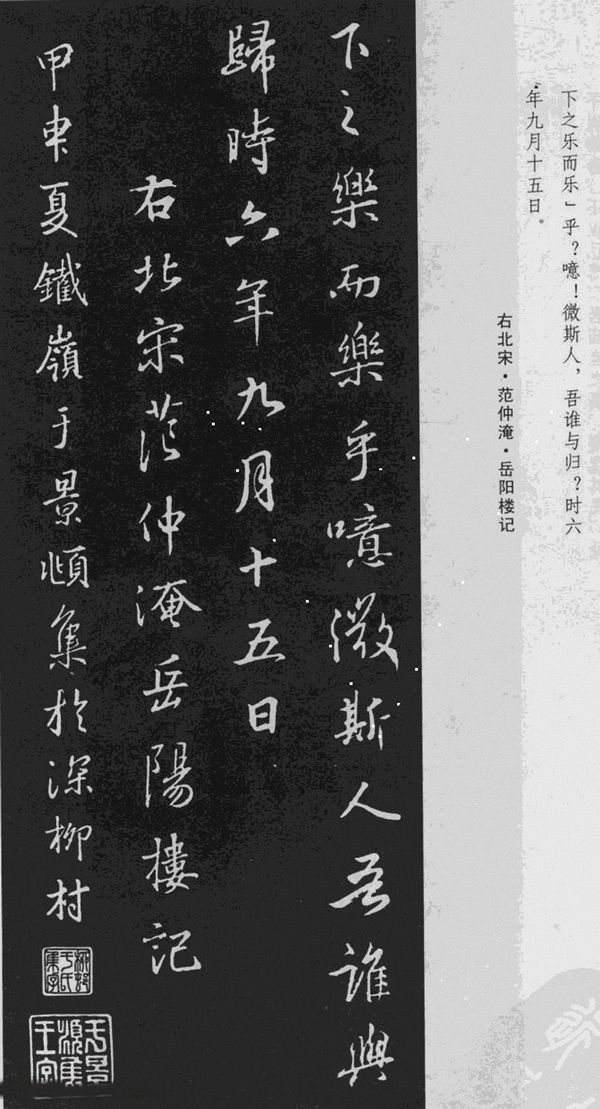 下之乐而乐」乎？噫！微斯人，吾谁与归？时六
年九月十五日。
右北宋·范仲淹·岳阳楼记
下之樂而樂乎噫微斯人吾誰與
歸時六年九月十五日
右北宋范仲淹岳陽樓記
甲申夏鐵嶺于景頫集於深柳村
于景頫集王字